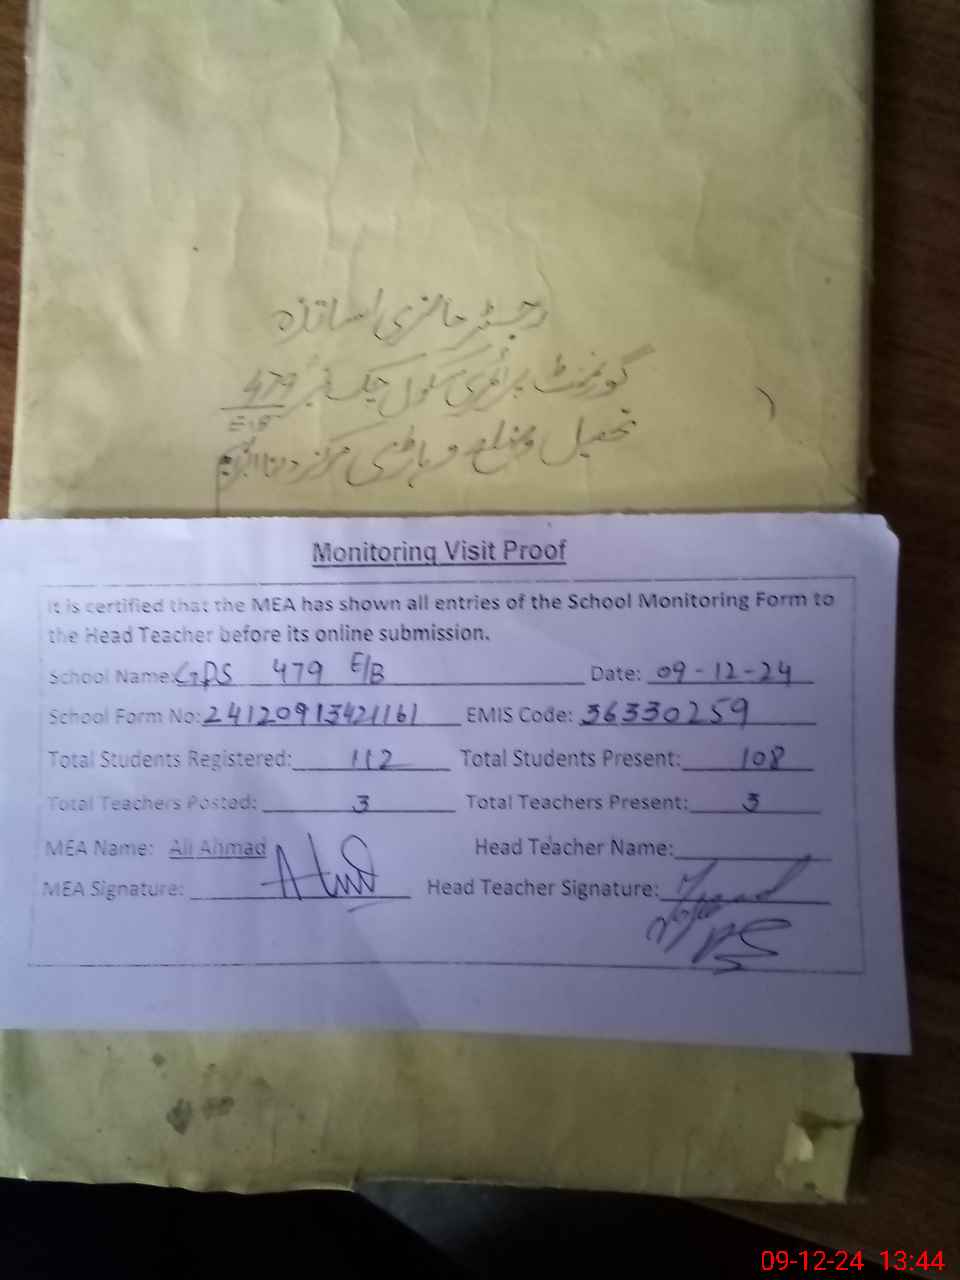 رجسٹر حاضری اساتذہ
گورنمنٹ پرائمری سکول چک نمبر 479
E.B
تحصیل و ضلع وہاڑی مرکز
Monitoring Visit Proof
It is certified that the MEA has shown all entries of the School Monitoring Form to
the Head Teacher before its online submission.
School Name: GPS 479 E/B Date: 09-12-24
School Form No: 24120913421161 EMIS Code: 36330259
Total Students Registered: 112 Total Students Present: 108
Total Teachers Posted: 3 Total Teachers Present: 3
MEA Name: Ali Ahmad Head Teacher Name:
MEA Signature: Head Teacher Signature:
09-12-24 13:44